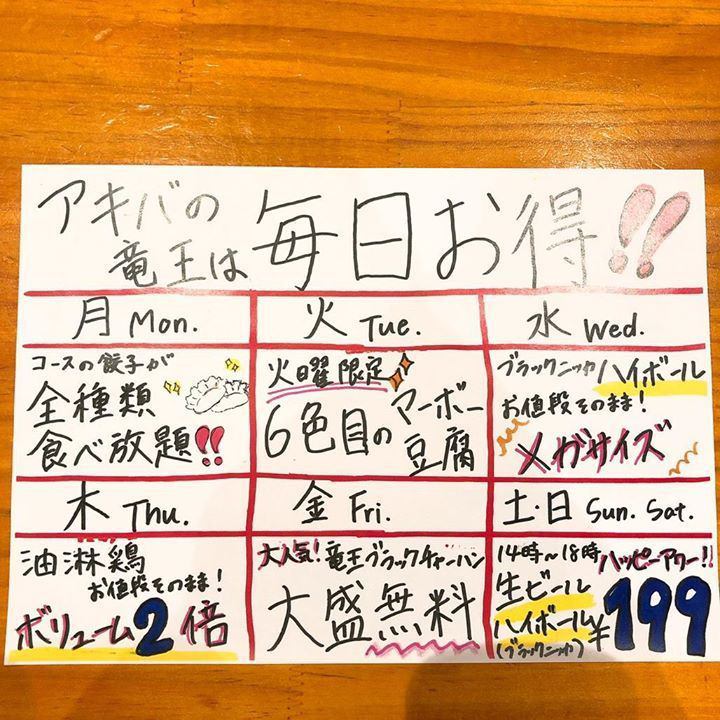 アキバの
竜王は
毎日お得!!
月 Mon.
火 Tue.
水 Wed.
コースの餃子が
全種類
食べ放題!!
火曜限定
6色目のマーボー
豆腐
ブラックニッカハイボール
お値段そのまま!
メガサイズ
木 Thu.
金 Fri.
土・日 Sun. Sat.
油淋鶏
お値段そのまま!
ボリューム2倍
大人気!竜王ブラックチャーハン
大盛無料
14時~18時ハッピーアワー!!
生ビール
ハイボール
(ブラックニッカ)
¥199